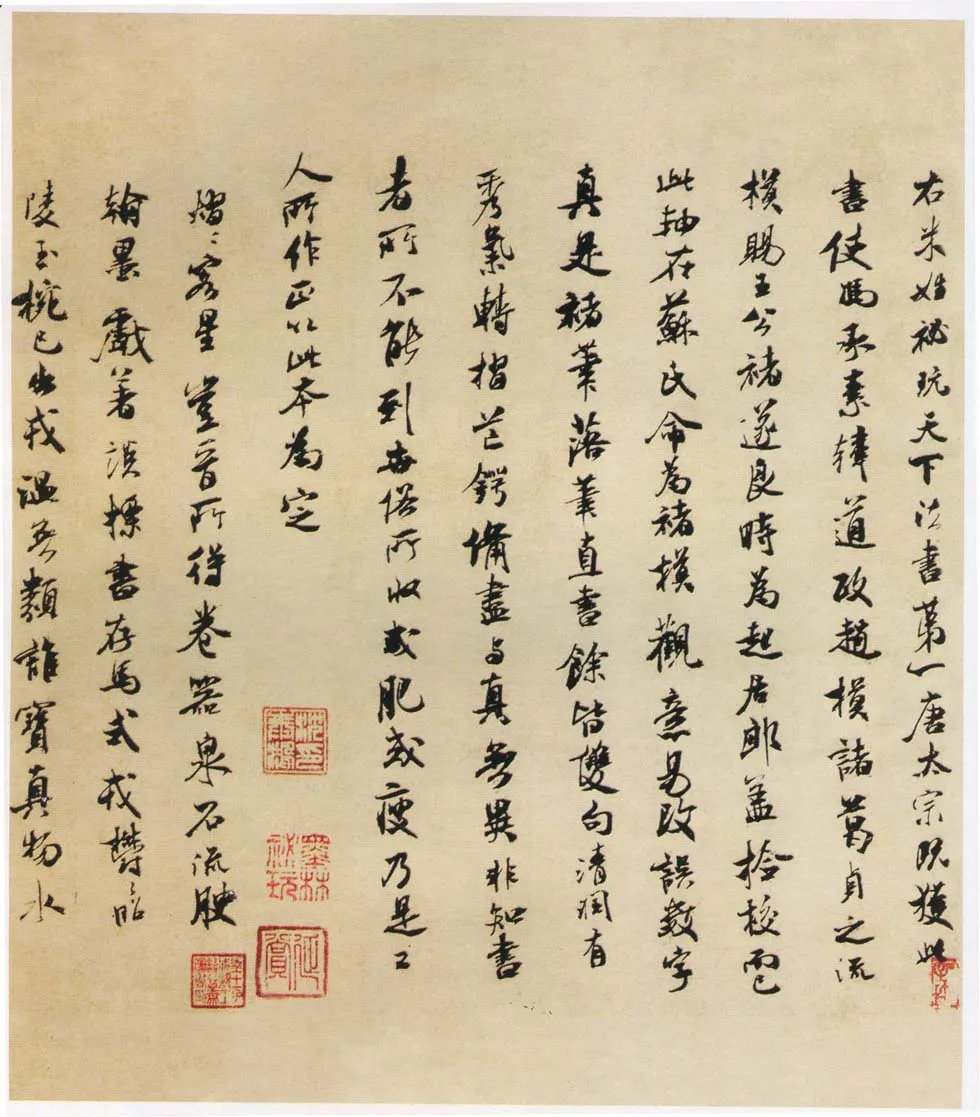 右米姓祕玩天下法書第一唐太宗既獲此
書使馮承素韓道政趙模諸葛貞之流
模賜王公褚遂良時為起居郎蓋撿校而已
此軸在蘇氏命為褚模觀意易改誤數字
真是褚筆落筆直書餘皆雙句清潤有
秀氣轉摺芒鍔備盡与真無異非知書
者所不能到世俗所收或肥或瘦乃是工
人所作正以此本為定
熠〻客星豈晉所得卷器泉石流腴
翰墨戲著談摽書存馬式戎鬱〻昭
陵玉椀已出戎溫無類誰寶真物水
墨林祕玩